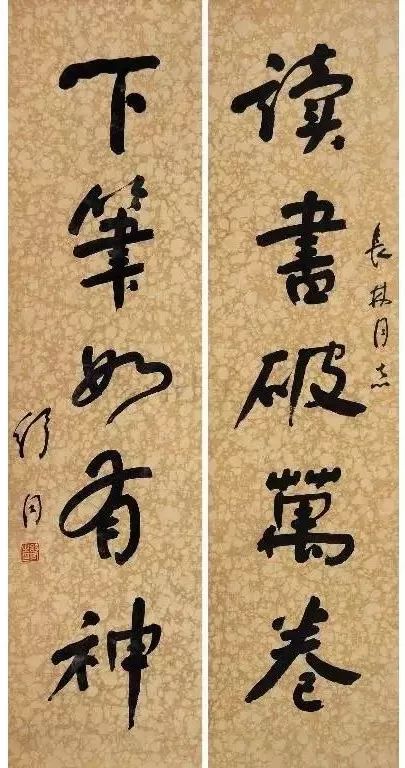 長林同志
读書破萬卷
下筆如有神
舒同